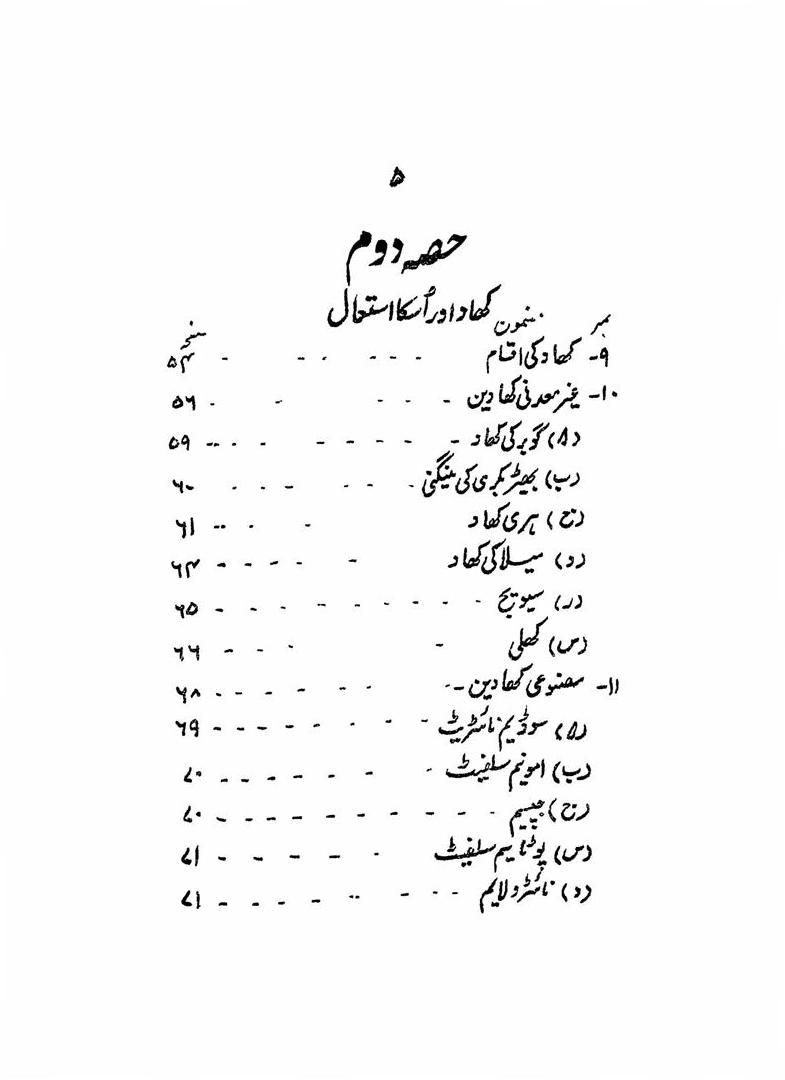 ۵
حصہ دوم
کھاد اور اُسکا استعمال
نمبر مضمون صفحہ
۹- کھاد کی اقسام - - - - - - ۵۴
۱۰- غیر معدنی کھادین - - - - - ۵۶
(ا) گوبر کی کھاد - - - - - - - ۵۹
(ب) بھیڑ بکری کی مینگنی - - - - - - ۶۰
(ج) ہری کھاد - - - - ۶۱
(د) میلا کی کھاد - - - - - ۶۴
(ر) سیویج - - - - - - - - - ۶۵
(س) کھلی - - - - - ۶۶
۱۱- مصنوعی کھادین - - - - - - - - ۶۸
(ا) سوڈیم نائٹریٹ - - - - - - - - - ۶۹
(ب) امونیم سلفیٹ - - - - - - - ۷۰
(ج) جپسیم - - - - - - - - - - ۷۰
(س) پوٹاسیم سلفیٹ - - - - - ۷۱
(د) نائٹرو لایم - - - - - - - - ۷۱